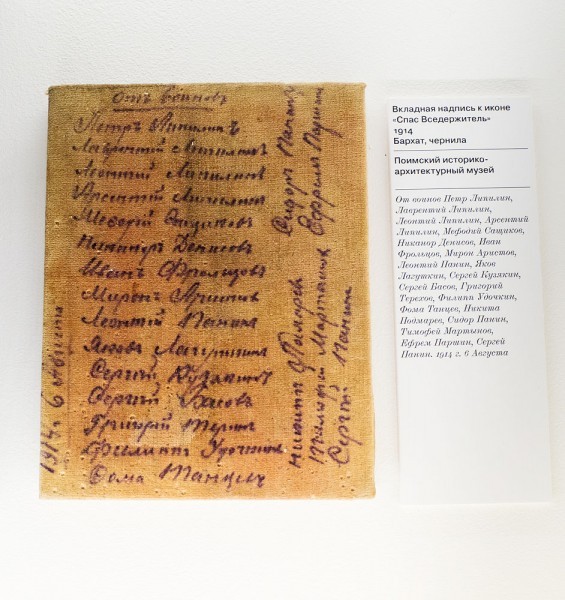 отъ воиновъ
Петръ Липилинъ
Лаврентій Липилинъ
Леонтій Липилинъ
Арсентій Липилинъ
Мефодій Сащиковъ
Никаноръ Денисовъ
Иванъ Фролцовъ
Миронъ
Леонтій Панинъ
Яковъ
Сергей Кузякинъ
Сергей Басовъ
Григорій
Филиппъ Удочкинъ
Фома Танцевъ
1914 г. 6 Августа
Сидоръ Панинъ
Ефремъ Паршинъ
Никита
Тимофей Мартынов
Сергей Панинъ
Вкладная надпись к иконе
«Спас Вседержитель»
1914
Бархат, чернила
Поимский историко-
архитектурный музей
От воинов Петр Липилин,
Лаврентий Липилин,
Леонтий Липилин, Арсентий
Липилин, Мефодий Сащиков,
Никанор Денисов, Иван
Фрольцов, Мирон Аристов,
Леонтий Панин, Яков
Лагуткин, Сергей Кузякин,
Сергей Басов, Григорий
Терехов, Филипп Удочкин,
Фома Танцев, Никита
Подмарев, Сидор Панин,
Тимофей Мартынов,
Ефрем Паршин, Сергей
Панин. 1914 г. 6 Августа